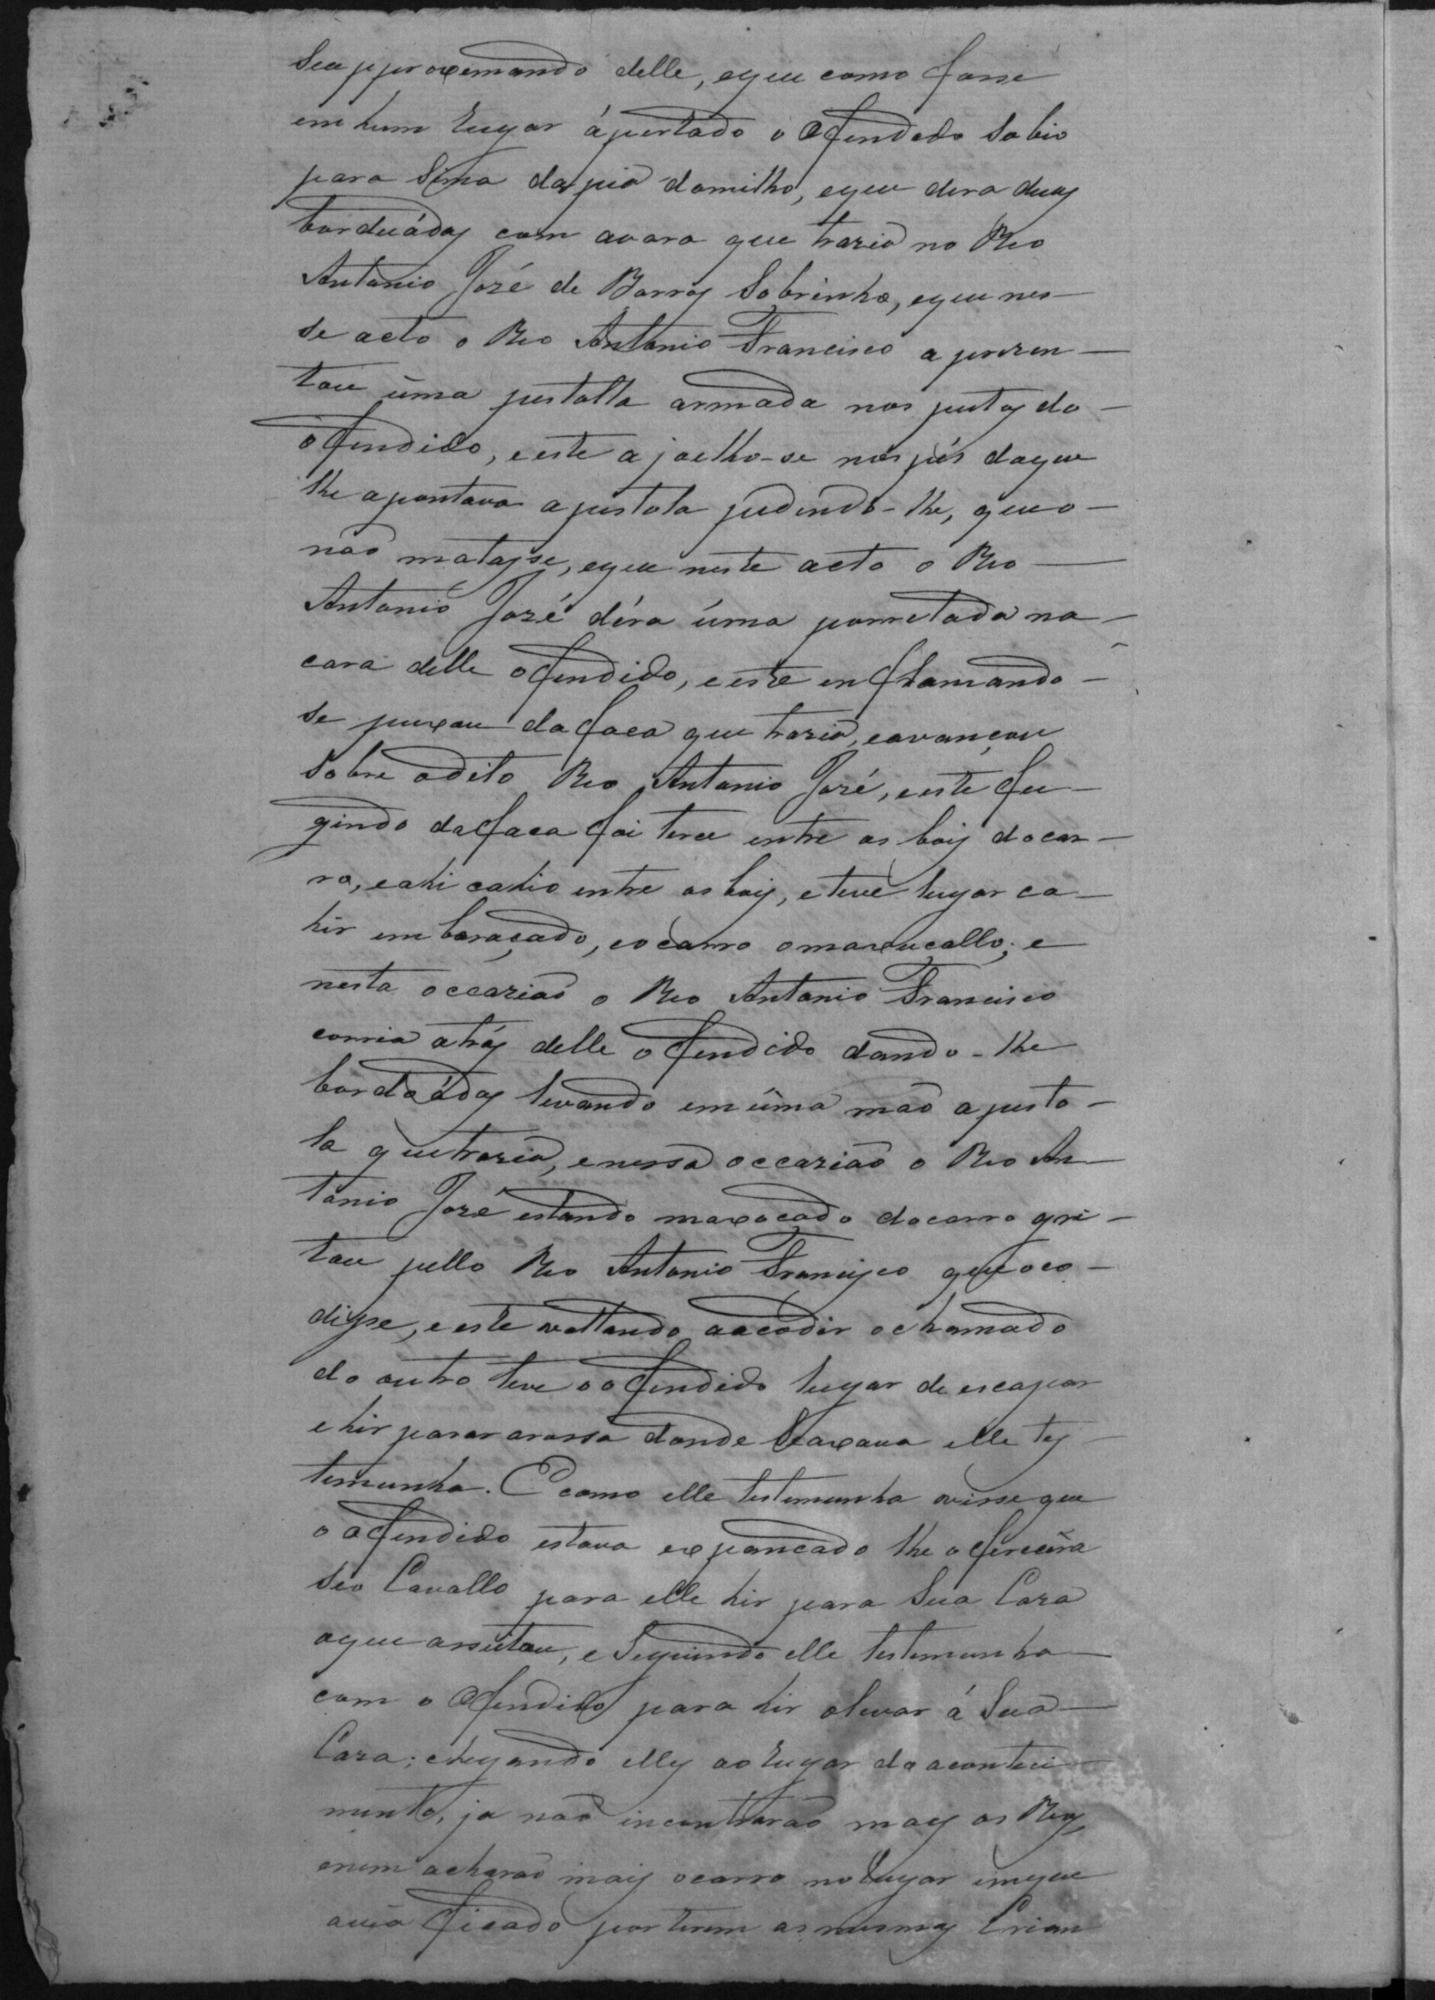 Seapproxemando delle, eque como fosse
em hum lugar ápertado o Offendido Sobio
para Sima da pia domilho, eque dera duas
borduádas com avara que trazia no Reo
Antonio José de Barros Sobrinho, eque nes-
se acto o Reo Antonio Francisco aprezen-
tou uma pistolla armada nos peitos do
offendido, e este ajoelho-se nos pés daque
lhe apontava apistola pedindo-lhe, que o
não matasse, eque neste acto o Reo
Antonio José déra úma porretada na
cara delle offendido, e este inflamando-
se puxou da faca que trazia, eavançou
sobre odito Reo Antonio José, e este fu-
gindo dafaca foi ter entre os bois docar-
ro, eahi cahio entre os bois, e teve lugar ca-
hir embaraçado, eocarro omaxucallo; e
nesta occazião o Reo Antonio Francisco
corria atrás delle offendido dando-lhe
bordoádas levando em úma mão apisto-
la que trazia, enessa occazião o Reo An-
tonio José estando maxocado docarro gri-
tou pello Reo Antonio Francisco que oco-
disse, e este voltando aacodir ochamado
do outro teve o offendido lugar de escapar
e hir parar arossa donde Seaxava elle tes-
temunha. E como elle testemunha visse que
o offendido estava expancado lhe oferecêra
Seo Cavallo para elle hir para Sua Caza
oque asseitou, e Seguindo elle testemunha
com o Offendido para hir olevar á Sua
Caza; chegando elles ao lugar do aconteci-
mento, ja não incontrarão mais os Reos,
enem acharão mais ocarro no lugar emque
avia ficado por terem as mesmas Crian